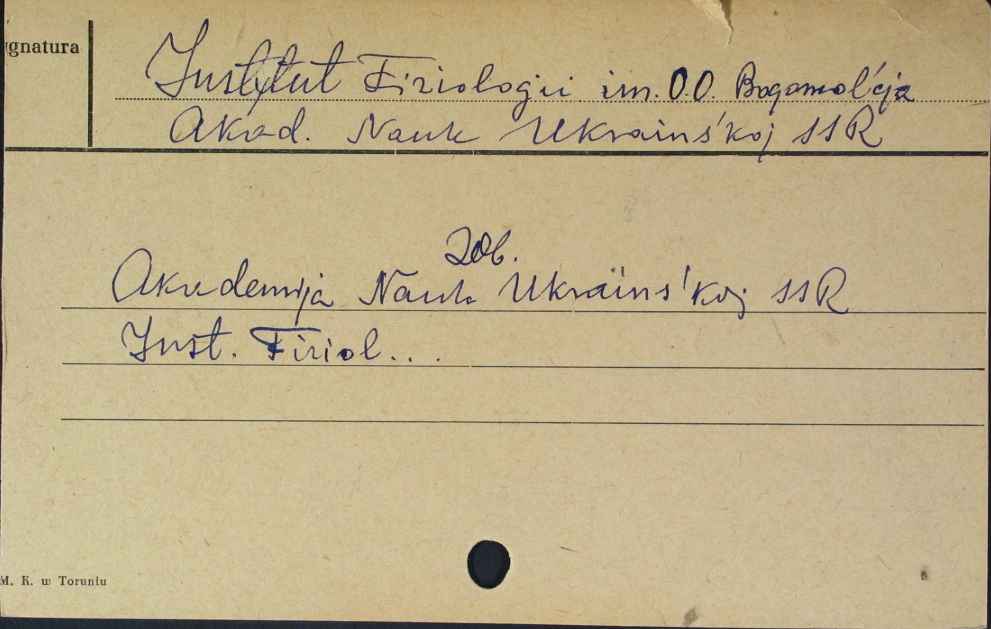 ygnatura
Instytut Fiziologii im. O.O. Bogomol'cja
Akad. Nauk Ukrains'koj SSR
Zob.
Akademija Nauk Ukraïns'koj SSR
Inst. Fiziol...
M. K. w Toruniu